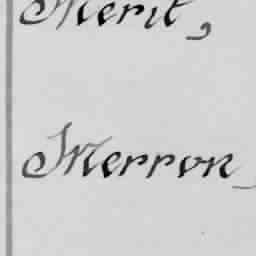 Merit,
Merron